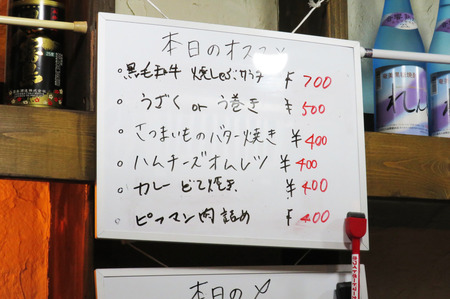 本日のオススメ
・黒毛和牛 焼しゃぶサラダ ¥700
・うざく or う巻き ¥500
・さつまいものバター焼き ¥400
・ハムチーズオムレツ ¥400
・カレー ¥400
・ピーマン肉詰め ¥400
本日の
れんと